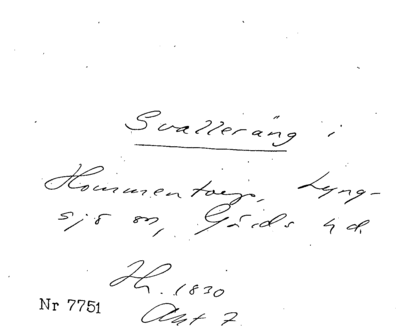 Svalleräng i
Hommentorp, Lyng-
sjö sn, Gärds hd.
Hh. 1830
Nr 7751
Akt 7